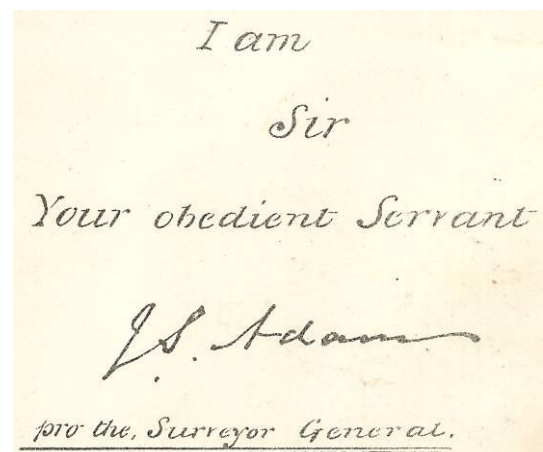 I am
Sir
Your obedient Servant
J. S. Adams
pro the, Surveyor General.